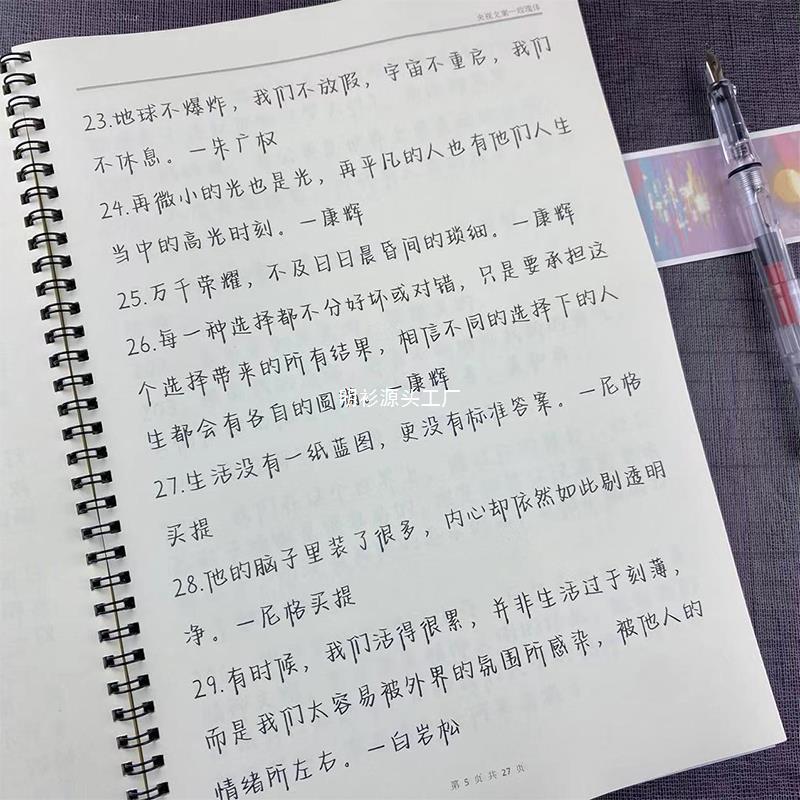 央视文案—玫瑰体
23.地球不爆炸，我们不放假，宇宙不重启，我们
不休息。—朱广权
24.再微小的光也是光，再平凡的人也有他们人生
当中的高光时刻。—康辉
25.万千荣耀，不及日日晨昏间的琐细。—康辉
26.每一种选择都不分好坏或对错，只是要承担这
个选择带来的所有结果，相信不同的选择下的人
生都会有各自的圆满。—康辉
27.生活没有一纸蓝图，更没有标准答案。—尼格
买提
28.他的脑子里装了很多，内心却依然如此剔透明
净。—尼格买提
29.有时候，我们活得很累，并非生活过于刻薄，
而是我们太容易被外界的氛围所感染，被他人的
情绪所左右。—白岩松
第 5 页 共 27 页
衫源头工厂